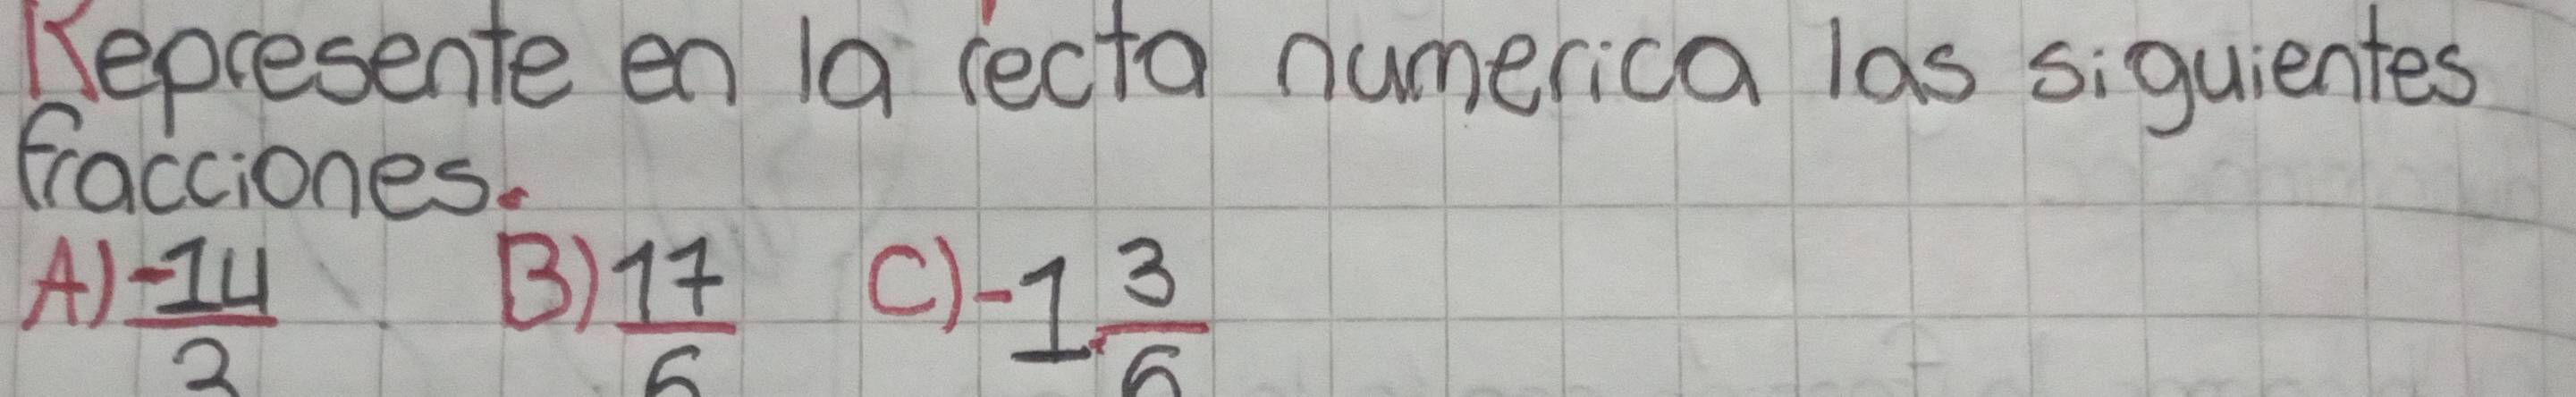 Represente en la recta numerica las siguientes
fracciones.
A) -14/2 B) 17/6 C) -1 3/6